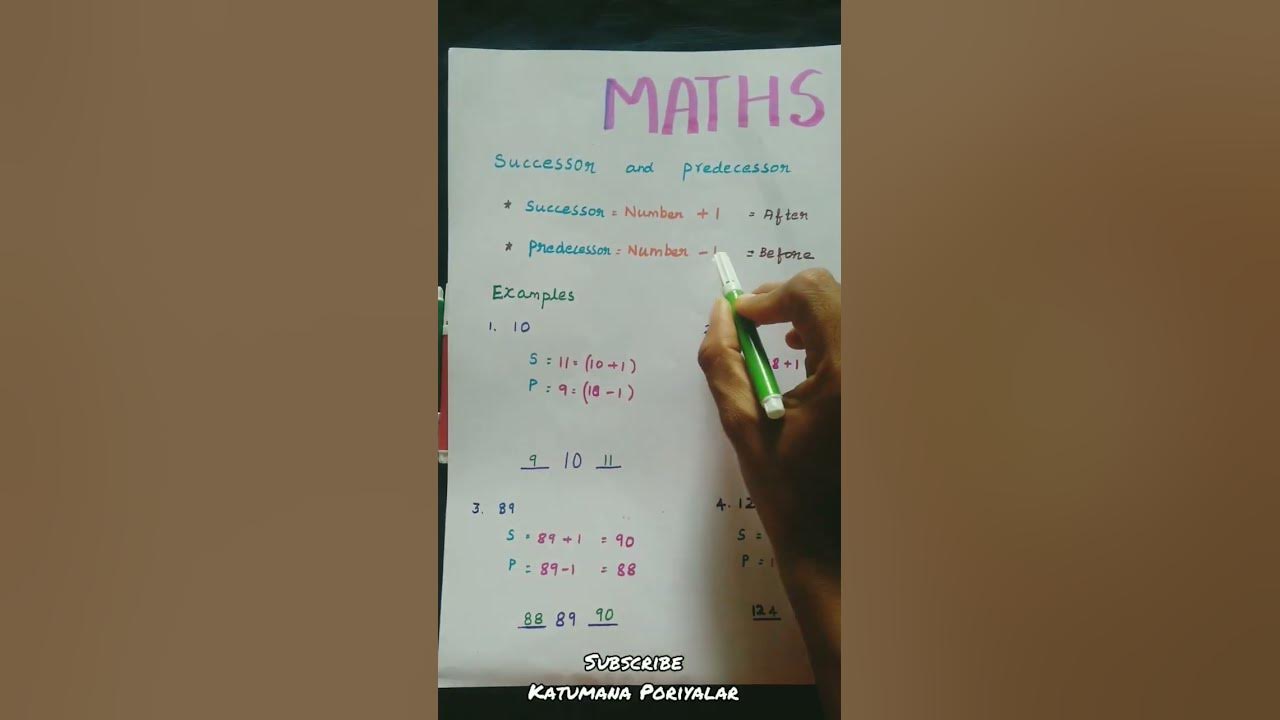 MATHS
Successor and predecessor
* Successor = Number + 1 = After
* Predecessor = Number - 1 = Before
Examples
1. 10
S = 11 = (10 + 1)
P = 9 = (10 - 1)
8 + 1
9 10 11
3. 89
S = 89 + 1 = 90
P = 89 - 1 = 88
88 89 90
4. 12
S =
P = 1
124
SUBSCRIBE
KATUMANA PORIYALAR